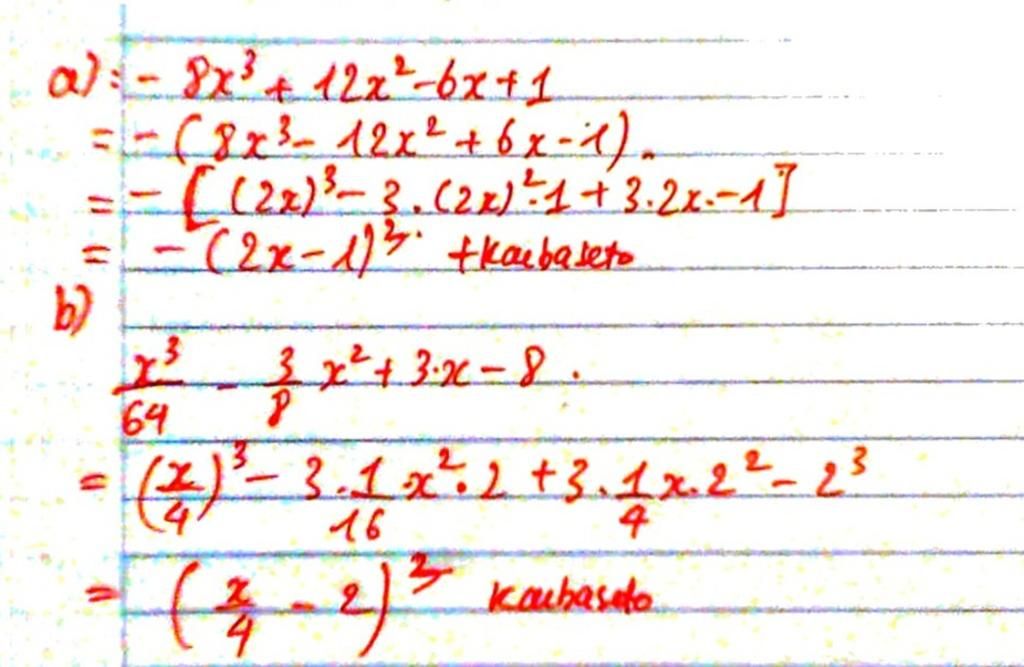 a): - 8x³ + 12x² - 6x + 1
= - (8x³ - 12x² + 6x - 1).
= - [(2x)³ - 3.(2x)².1 + 3.2x. - 1]
= - (2x - 1)³. +koubaseto
b)
x³/64 - 3/8 x² + 3.x - 8.
= (x/4)³ - 3.1/16 x².2 + 3.1/4 x.2² - 2³
= (x/4 - 2)³ koubaseto